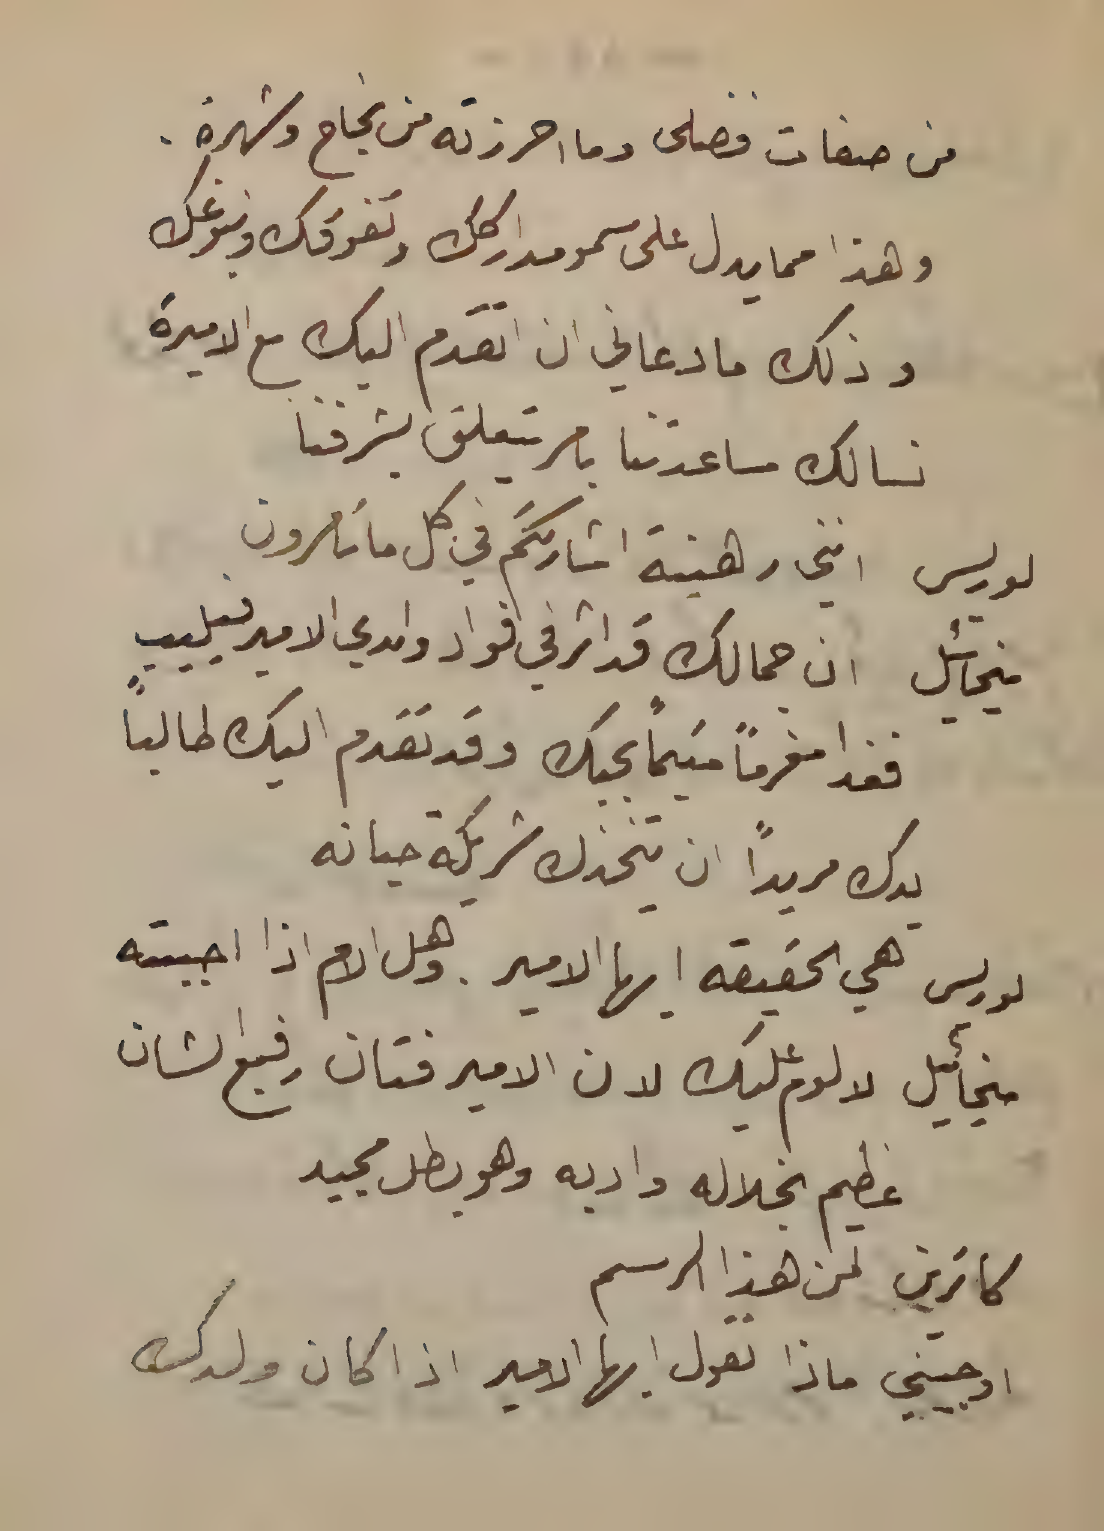 من صفات فضلى وما احرزته من نجاح وشهرة .
وهذا مما يدل على سمو مداركك وتفوقك ونبوغك
وذلك ما دعاني ان اتقدم اليك مع الاميرة
نسالك مساعدتنا بامر يتعلق بشرفنا
لوريس انني رهينة اشارتكم في كل ما تامرون
ميخائيل ان جمالك قد اثر في فواد ولدي الامير فيليب
فغدا مغرماً متيماً بحبك وقد تقدم اليك طالباً
يدك مريداً ان يتخذك شريكة حياته
لوريس هي الحقيقه ايها الامير . وهل الام اذا احببته
ميخائيل لا لوم عليك لان الامير فتان رفيع الشان
عظيم بخلاله وادبه وهو بطل مجيد
كاترين لمن هذا الرسم
اوجيني ماذا تقول ايها الامير اذا كان ولدك